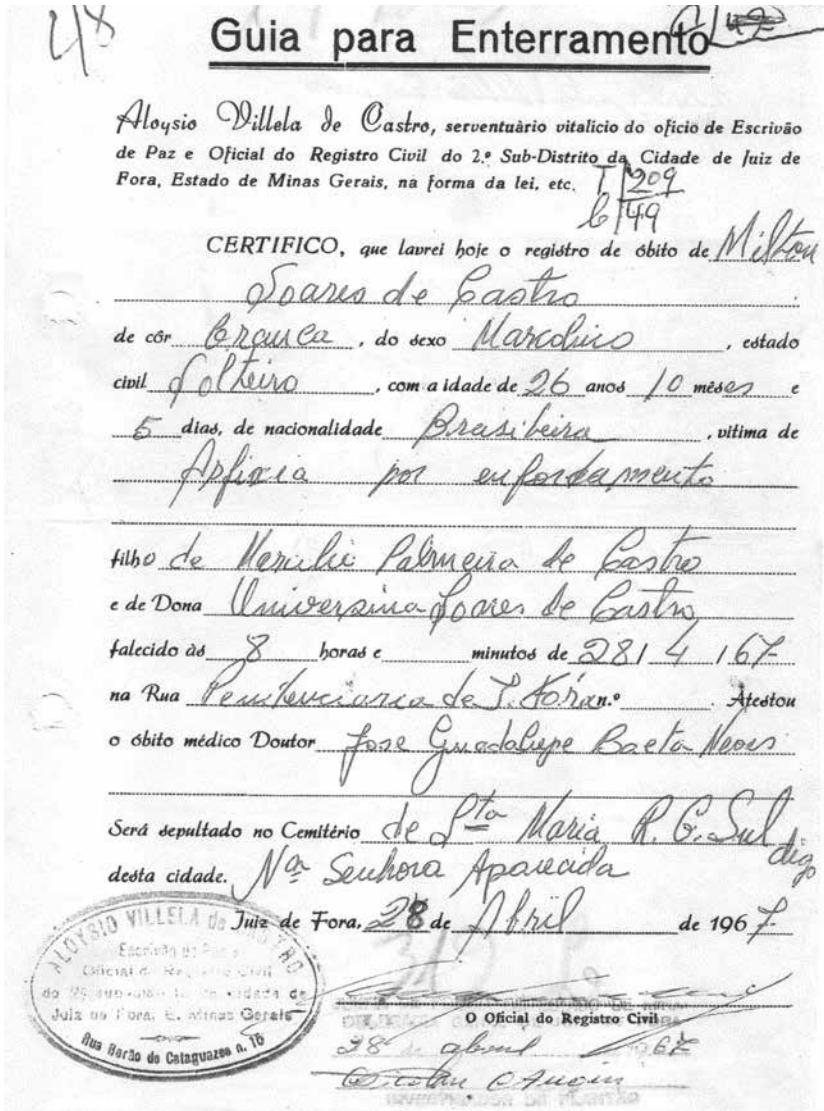 48
Guia para Enterramento
Aloysio Villela de Castro, serventuário vitalício do ofício de Escrivão
de Paz e Oficial do Registro Civil do 2.º Sub-Distrito da Cidade de Juiz de
Fora, Estado de Minas Gerais, na forma da lei, etc. T 209
C 49
CERTIFICO, que lavrei hoje o registro de óbito de Milton
Soares de Castro
de côr Branca, do sexo Masculino, estado
civil Solteiro, com a idade de 26 anos 10 mêses e
5 dias, de nacionalidade Brasileira, vitima de
Asfixia por enforcamento
filho de Palmeira de Castro
e de Dona Universina Soares de Castro
falecido às 8 horas e minutos de 28/4/67
na Rua Penitenciaria de J. Fóra n.º Atestou
o óbito médico Doutor Jose Guadalupe Baeta Neves
Será sepultado no Cemitério de Sta Maria R. G. Sul digo
desta cidade. Na Senhora Aparecida
Juiz de Fora, 28 de Abril de 1967
ALOYSIO VILLELA de CASTRO
Escrivão de Paz e
Oficial do Registro Civil
do 2º Sub-distrito da cidade de
Juiz de Fora, E. Minas Gerais
Rua Barão de Cataguazes n. 16
O Oficial do Registro Civil
28 de abril 1967